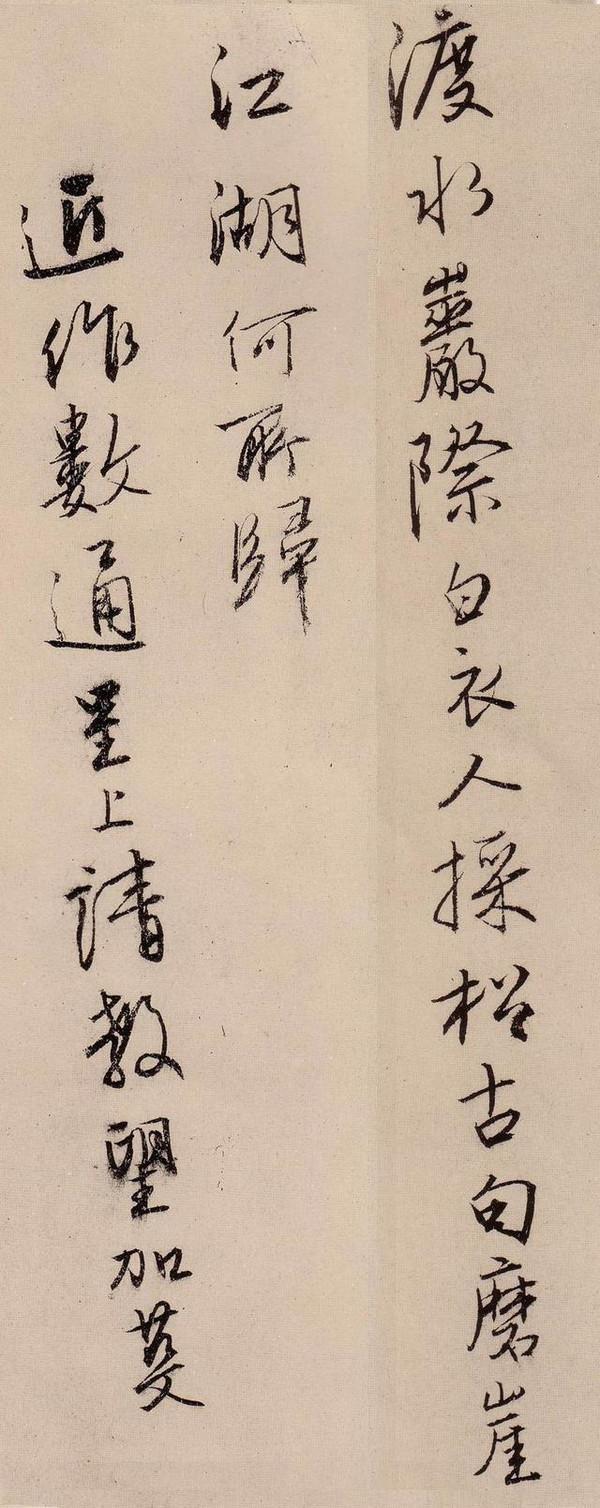 渡水巖際白衣人採松古句磨崖
江湖何所歸
近作數通呈上請教望加芟